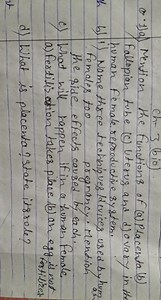 Ch-3 bio
a) Mention the functions of a) Placenta b)
Fallopian tube (c) Uterus and d) ovary in the
human female reproductive system.
b) i) Name three techniques/devices used by human
females to pregnancy. Mention
the side effects caused by each.
c) What will happen if in a human female
a) Fertilization takes place b) an egg is not
fertilised
d) What is placenta? State its role?